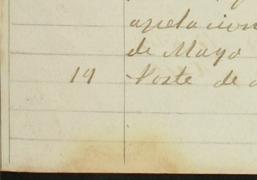 apelacion
de Mayo
19 Poste de